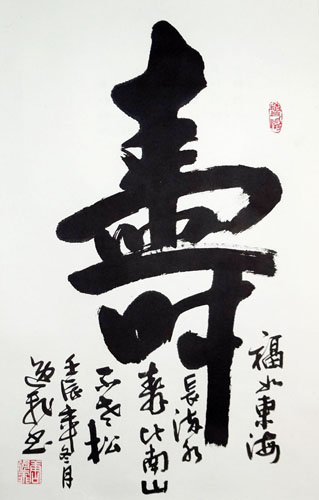 壽
福如東海
長流水
寿比南山
不老松
壬辰年冬月
书